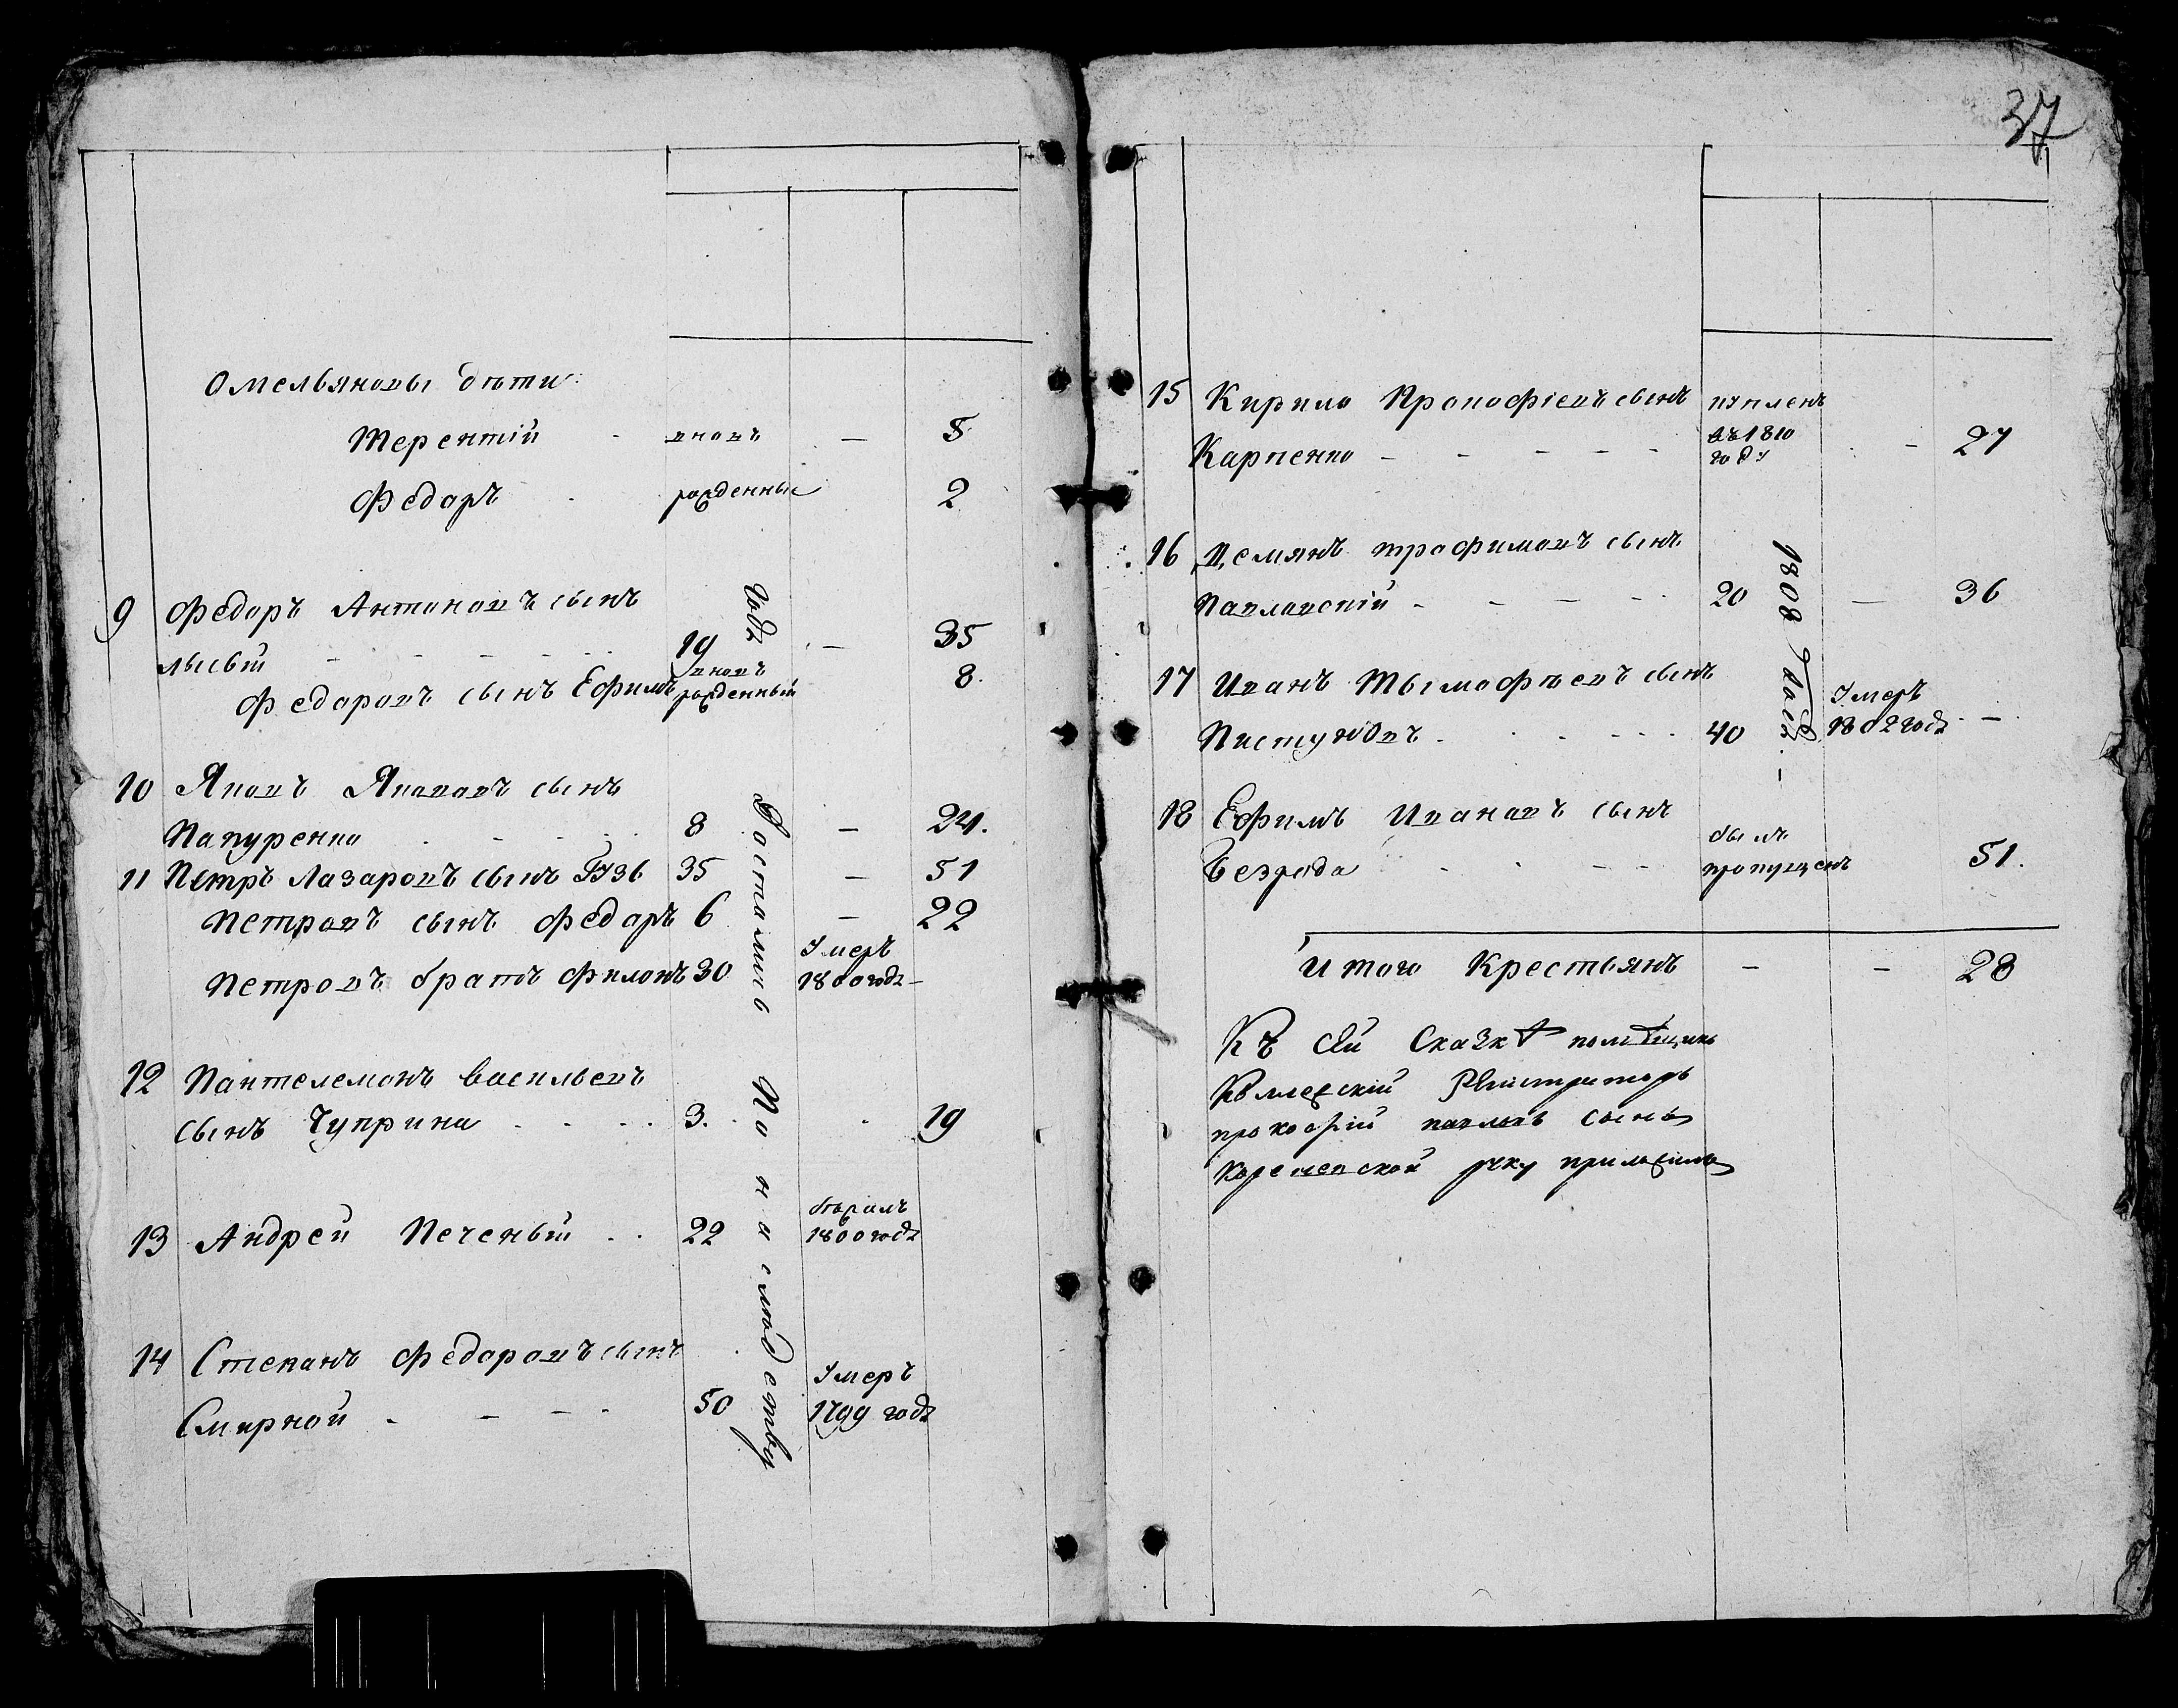 37
Омельяновы дѣти:
Терентій вновь — 5
Федоръ рожденные 2
9 Федоръ Антоновъ сынъ
лысый 19 — 35
Федоровъ сынъ Ефимъ вновь рожденный 8.
10 Яковъ Якововъ сынъ
8 — 24.
11 Петръ Лазаровъ сынъ 35 — 51
Петровъ сынъ Федоръ 6 — 22
Петровъ братъ Филонъ 30 Умеръ 1800 года —
12 Пантелемонъ Васильевъ
сынъ Чуприна 3. 19
13 Андрей Печеный 22 бѣжалъ 1800 года
14 Степанъ Федоровъ сынъ
Смирной 50 Умеръ 1799 года
Досталис По наслюдству
года
15 Кирило Прокофіевъ сынъ купленъ
Карпенко въ 1810 году — 27
16 Демянъ трофимовъ сынъ
Павловскій 20 — 36
17 Иванъ Тымофѣевъ сынъ
40 Умеръ 1802 года —
1808
18 Ефимъ Ивановъ сынъ
Безрода былъ пропущенъ 51.
Итого Крестьянъ — — 28
Къ сей Сказкѣ помѣщикъ
Колежскій Регистраторъ
прокофій павловъ сынъ
руку приложилъ